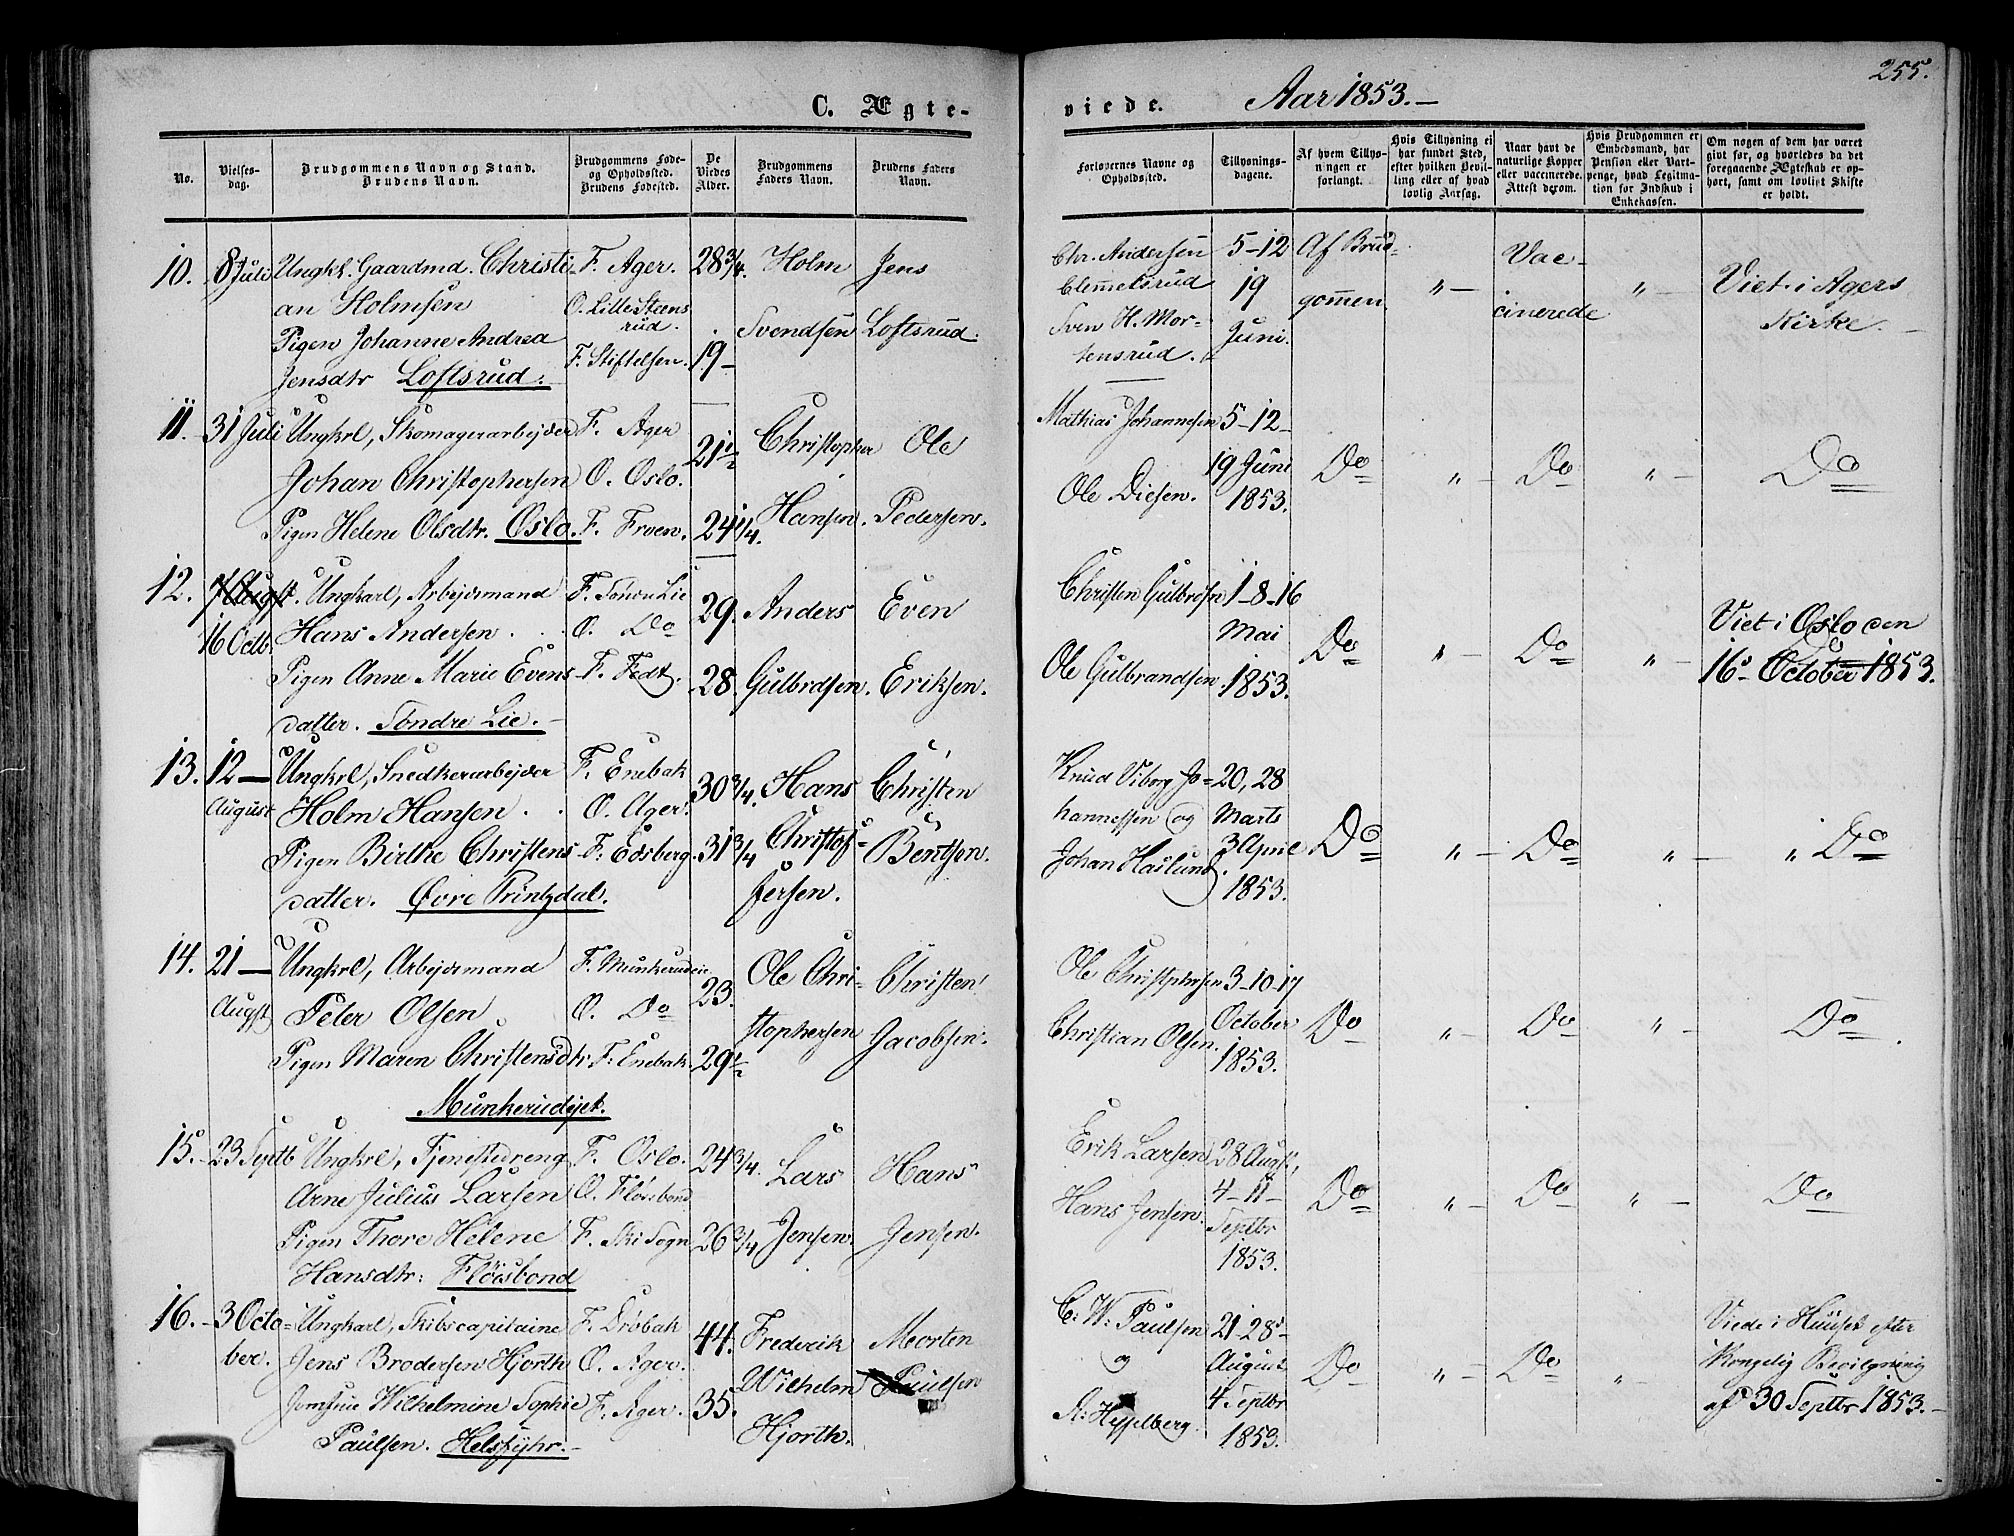 C. Ægte-
viede. Aar 1853.-
255.
No.
Vielses-
dag.
Brudgommens Navn og Stand.
Brudens Navn.
Brudgommens Føde-
og Opholdssted.
Brudens Fødested.
De
Viedes
Alder.
Brudgommens
Faders Navn.
Brudens Faders
Navn.
Forlovernes Navne og
Opholdssted.
Tillysnings-
dagene.
Af hvem Tillys-
ningen er
forlangt.
Hvis Tillysning ei
har fundet Sted,
efter hvilken Bevil-
ling eller af hvad
lovlig Aarsag.
Naar havt de
naturlige Kopper
eller vaccinerede.
Attest derom.
Hvis Brudgommen er
Embedsmand, har
Pension eller Vart-
penge, hvad Legitima-
tion for Indskud i
Enkekassen.
Om nogen af dem har været
givt før, og hvorledes da det
foregaaende Ægteskab er op-
hørt, samt om lovligt Skifte
er holdt.
10. 8 Juli Ungkl. Gaardmd. Christi- F. Ager. 28 3/4. Holm Jens
an Holmsen O. Lille Stens
rud. Svendsen Loftsrud.
Pigen Johanne Andrea F. Stiftelsen. 19-
Jensdtr Loftsrud.
Chr. Andersen 5-12 Af Brud- Vac- Viet i Agers
Clemmetsrud 19 gommen. " - cinerede " - Kirke. -
Sven H. Mor- Juni.
tensrud.
11. 31 Juli Ungkrl, Skomagerarbejder F. Ager 21 1/2 Christopher Ole
Johan Christophersen O. Oslo.
Pigen Helene Olsdtr. Oslo. F. Froen. 24 1/4. Hansen. Pedersen.
Mathias Johannesen 5-12-
19 Juni Do " - Do " - Do
Ole Diesen. 1853.
12. 7 August. Ungkarl, Arbejdsmand F. Sondre Lie 29. Anders Even
16 Octb. Hans Andersen. O. Do
Pigen Anne Marie Evens- F. Fedt. 28. Gulbrdsen. Eriksen.
datter. Sondre Lie.-
Christen Gulbrdsn 1-8-16
Mai Do " - Do " - Viet i Oslo den
Ole Gulbrandsen. 1853. 16. October 1853.
13. 12- Ungkrl, Snedkerarbejder F. Enebak 30 3/4. Hans Christen
August Holm Hansen. O. Ager.
Pigen Birthe Christens- F. Edsberg. 31 3/4 Christof- Bentsen.
datter. Øvre Printzdal. fersen.
Knud Viborg Jo- 20, 28
hannessen og Marts
Johan Haslund. 3 April Do " - Do " - " Do
1853.
14. 21- Ungkrl, Arbejdsmand F. Munkerudeie 23. Ole Chri- Christen
Augst Peter Olsen O. Do stophersen Jacobsen.
Pigen Maren Christensdtr F. Enebak. 29 1/2
Munkerudejet.
Ole Christophersen 3-10-17
Christian Olsen. October Do " - Do " - Do
1853.
15. 23 Septb Ungkrl, Tjenestedreng F. Oslo. 24 3/4. Lars Hans
Arne Julius Larsen O. Floisbond
Pigen Thore Helene F. Ski Sogn 26 3/4 Jensen. Jensen.
Hansdtr: Floisbond
Erik Larsen 28 Augst,
Hans Jensen. 4-11- Do " - Do " - Do
Septbr
1853.
16. 3 Octo- Ungkarl, Skibscapitaine F. Drøbak 44. Frederik Morten
ber. Jens Brodersen Hjorth O. Ager. Wilhelm Paulsen
Jomfrue Wilhelmine Sophie F. Ager. 35. Hjorth.
Paulsen. Helsfyhr.-
C: W: Paulsen 21-28- Viede i Huuset efter
og August Do " - Do " - Kongelig Bevilgning
4 Septbr af 30 Septbr 1853.-
1853.